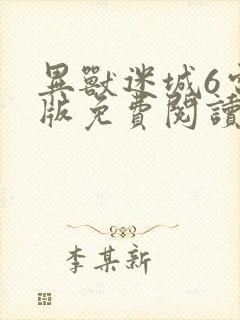 異獸迷城6
版免費閱讀
李某新